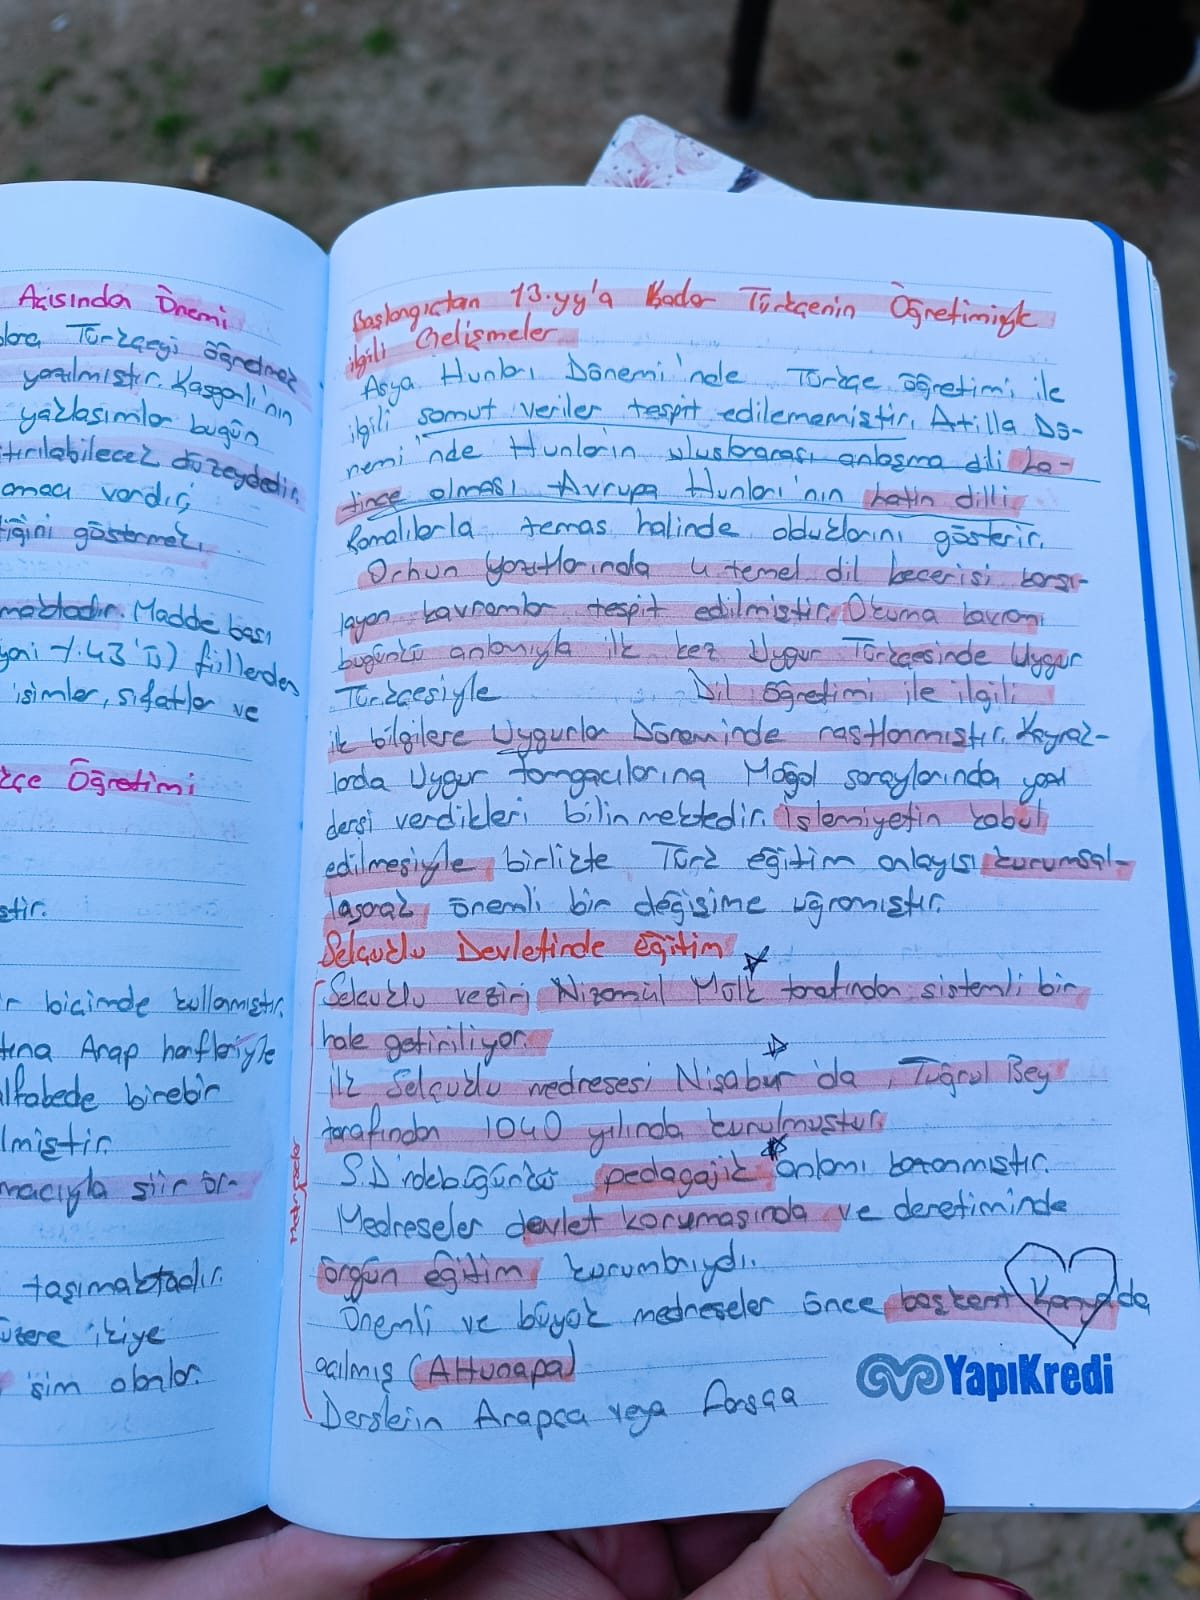 Açısından Önemi
Türkçeyi öğretmek
yazılmıştır. Kaşgarlı'nın
yaklaşımlar bugün
tırılabilecek düzeydedir.
amacı vardır;
tiğini göstermek.
maktadır. Madde başı
yani %43'ü) fiillerden
isimler, sıfatlar ve
kçe Öğretimi
ştir.
r biçimde kullanmıştır.
tına Arap harfleriyle
lfabede birebir
lmiştir.
macıyla şiir ör-
taşımaktadır.
üzere ikiye
isim olanlar.
Başlangıçtan 13.yy'a Kadar Türkçenin Öğretimiyle
ilgili Gelişmeler
Asya Hunları Dönemi'nde Türkçe öğretimi ile
ilgili somut veriler tespit edilememiştir. Atilla Dö-
nemi'nde Hunların uluslararası anlaşma dili La-
tince olması Avrupa Hunları'nın Latin dilli
Romalılarla temas halinde olduklarını gösterir.
Orhun Yazıtlarında 4 temel dil becerisi karşı-
layan kavramlar tespit edilmiştir. Okuma kavramı
bugünkü anlamıyla ilk kez Uygur Türkçesinde Uygur
Türkçesiyle Dil öğretimi ile ilgili
ilk bilgilere Uygurlar Döneminde rastlanmıştır. Kaynak-
larda Uygur tamgacılarına Moğol saraylarında yazı
dersi verdikleri bilinmektedir. İslamiyetin kabul
edilmesiyle birlikte Türk eğitim anlayışı kurumsal-
laşarak önemli bir değişime uğramıştır.
Selçuklu Devletinde Eğitim
Selçuklu veziri Nizamül Mülk tarafından sistemli bir
hale getiriliyor.
İlk Selçuklu medresesi Nişabur'da, Tuğrul Bey
tarafından 1040 yılında kurulmuştur.
S.D'rdebugünkü pedagajik anlamı kazanmıştır.
Medreseler devlet korumasında ve denetiminde
örgün eğitim kurumlarıydı.
Önemli ve büyük medreseler önce başkent Konya'da
açılmış (Altunapa)
Derslerin Arapça veya Farsça
Medreseler
YapıKredi